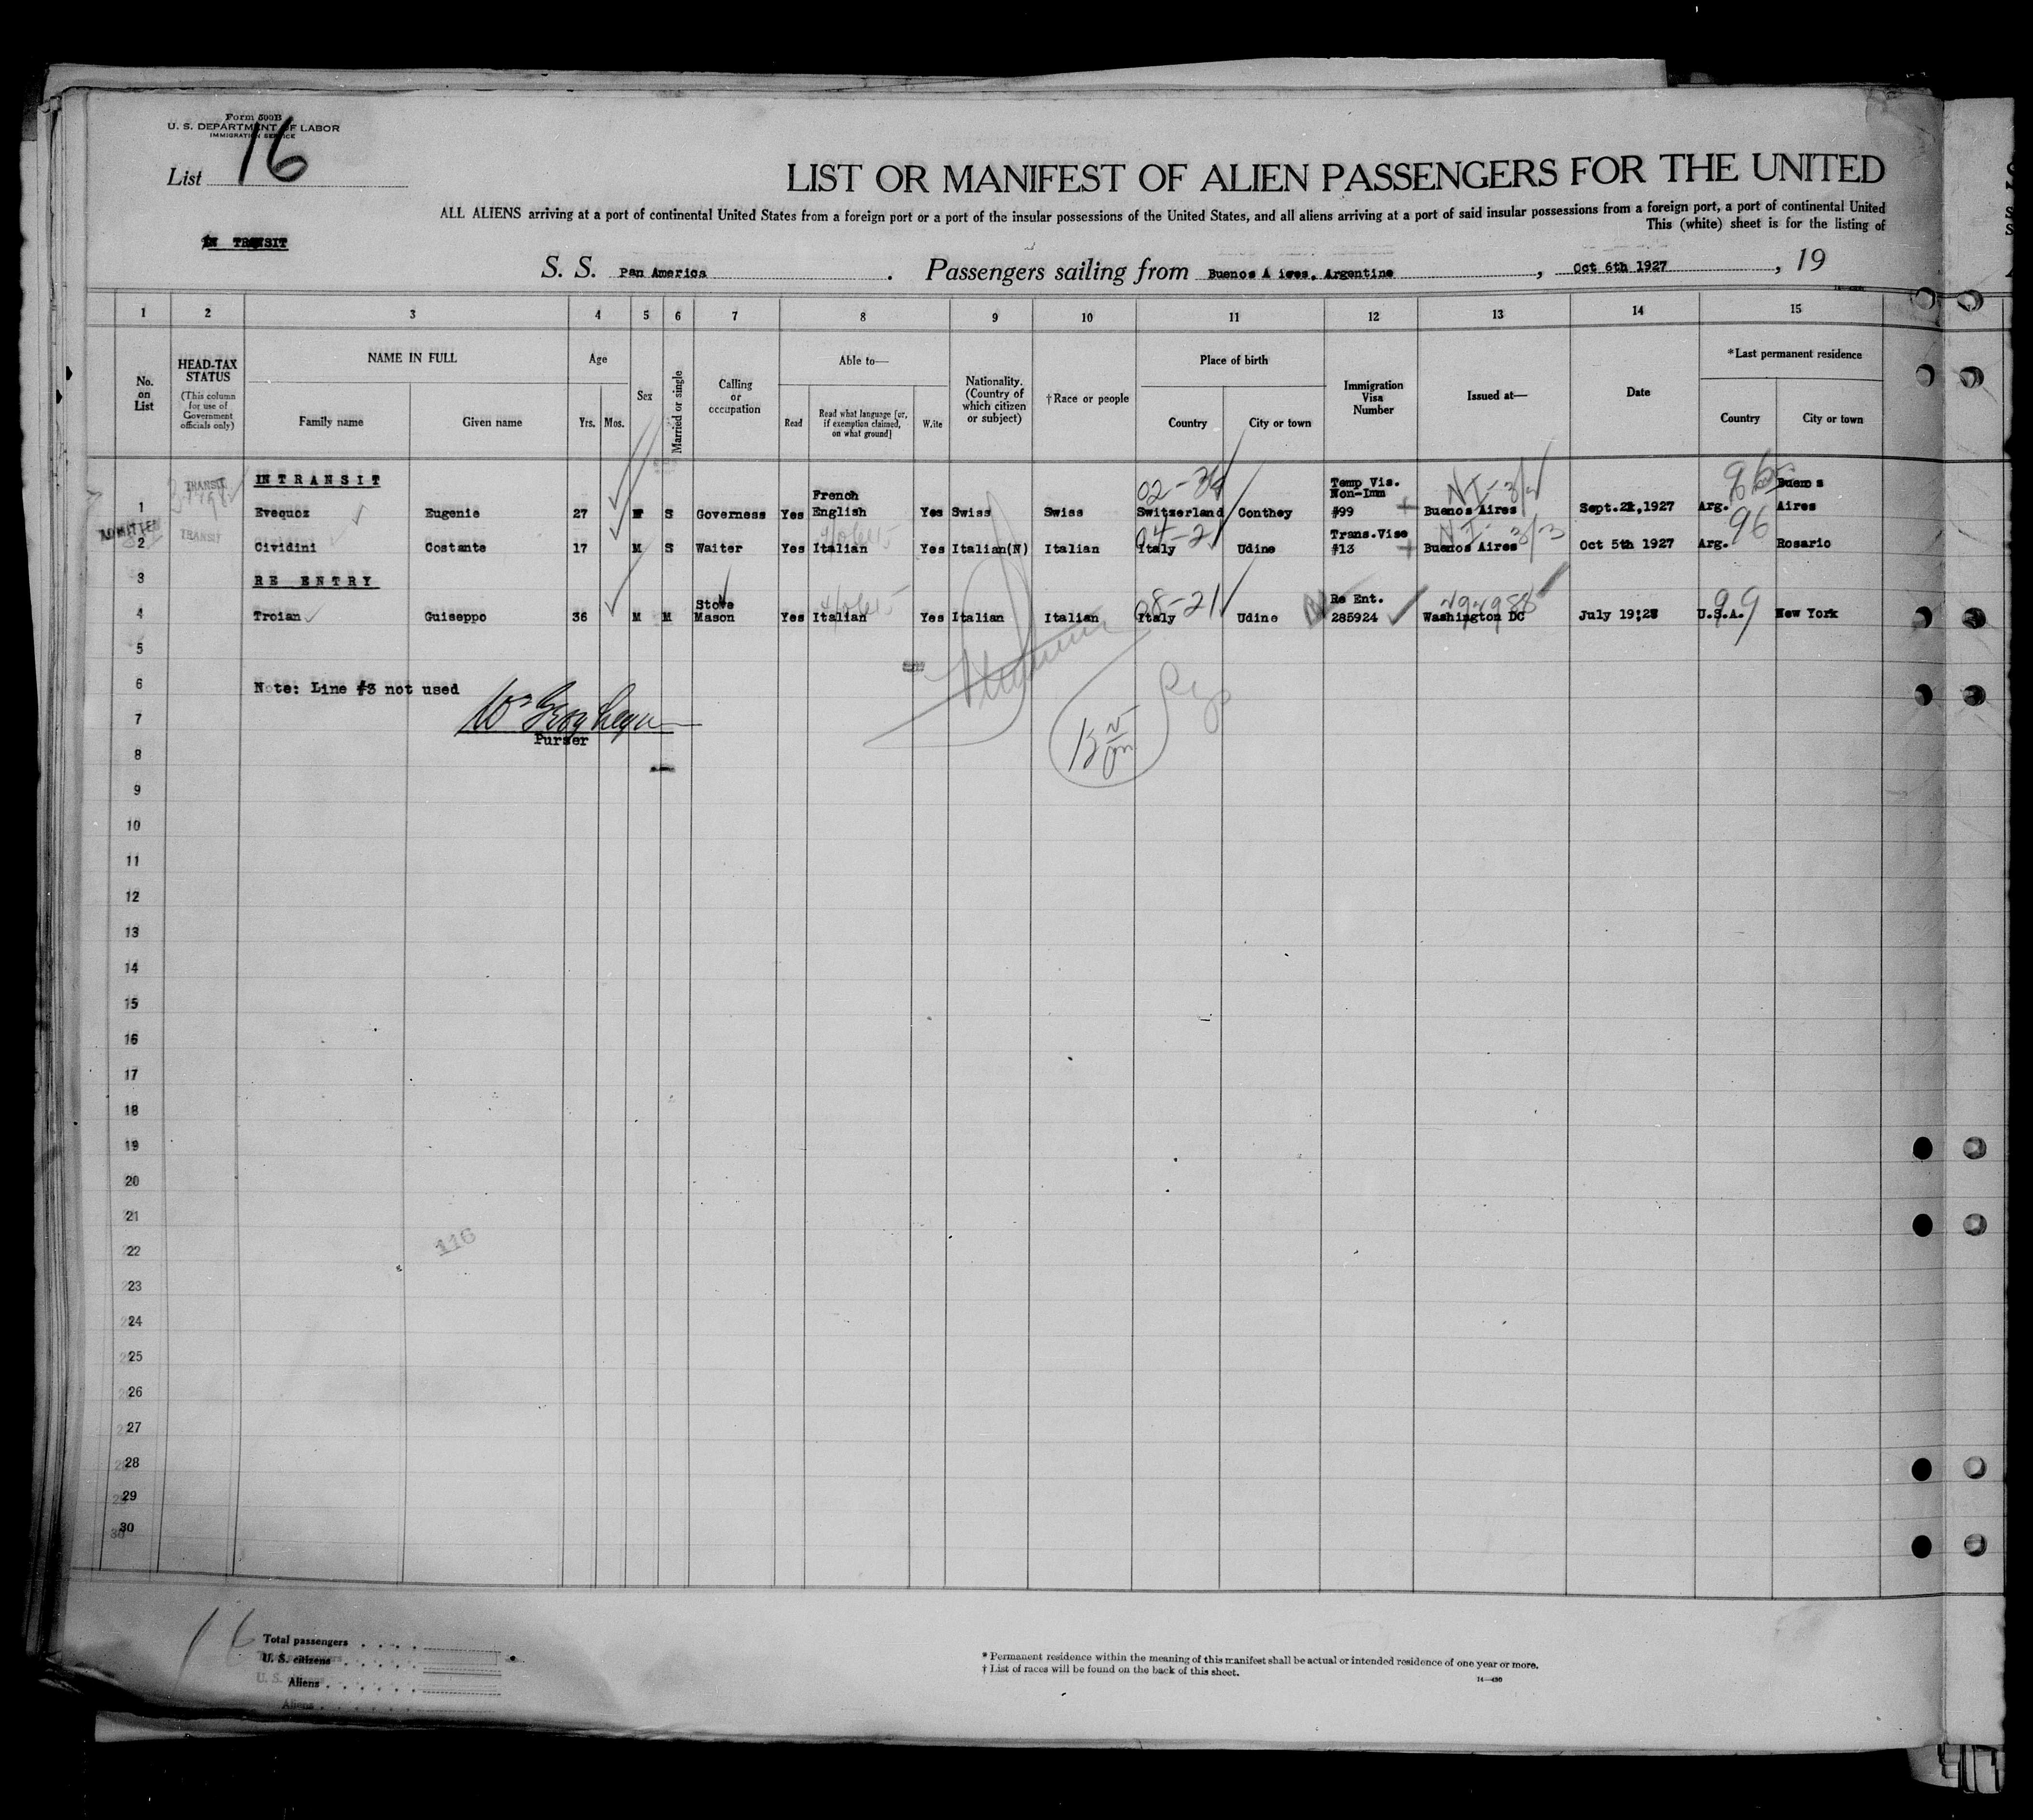 Form 500B
U. S. DEPARTMENT OF LABOR
IMMIGRATION SERVICE
List 16
LIST OR MANIFEST OF ALIEN PASSENGERS FOR THE UNITED
ALL ALIENS arriving at a port of continental United States from a foreign port or a port of the insular possessions of the United States, and all aliens arriving at a port of said insular possessions from a foreign port, a port of continental United
This (white) sheet is for the listing of
IN TRANSIT
S. S. Pan America . Passengers sailing from Buenos A ires, Argentine , Oct 6th 1927 , 19
1 2 3 4 5 6 7 8 9 10 11 12 13 14 15
No. on List
HEAD-TAX STATUS
(This column for use of Government officials only)
NAME IN FULL
Family name Given name
Age
Yrs. Mos.
Sex
Married or single
Calling or occupation
Able to—
Read Read what language [or, if exemption claimed, on what ground] Write
Nationality. (Country of which citizen or subject)
†Race or people
Place of birth
Country City or town
Immigration Visa Number
Issued at—
Date
*Last permanent residence
Country City or town
TRANSIT IN TRANSIT French 02-34 Temp Vis. Non-Imm NI-3/ 96 Buenos
1 Evequoz Eugenie 27 F S Governess Yes English Yes Swiss Swiss Switzerland Conthey #99 Buenos Aires Sept.22,1927 Arg. Aires
ADMITTED TRANSIT 04-21 Trans.Vise NI-3/3 96
2 Cividini Costante 17 M S Waiter Yes Italian Yes Italian(N) Italian Italy Udine #13 Buenos Aires Oct 5th 1927 Arg. Rosario
3 RE ENTRY
Stove 08-21 Re Ent. 99
4 Troian Guiseppo 36 M M Mason Yes Italian Yes Italian Italian Italy Udine 285924 Washington DC July 19:28 U.S.A. New York
5
6 Note: Line #3 not used
7
Purser
8
9
10
11
12
13
14
15
16
17
18
19
20
21
116
22
23
24
25
26
27
28
29
30
16
Total passengers
U. S. citizens
Aliens
* Permanent residence within the meaning of this manifest shall be actual or intended residence of one year or more.
† List of races will be found on the back of this sheet.
14—430